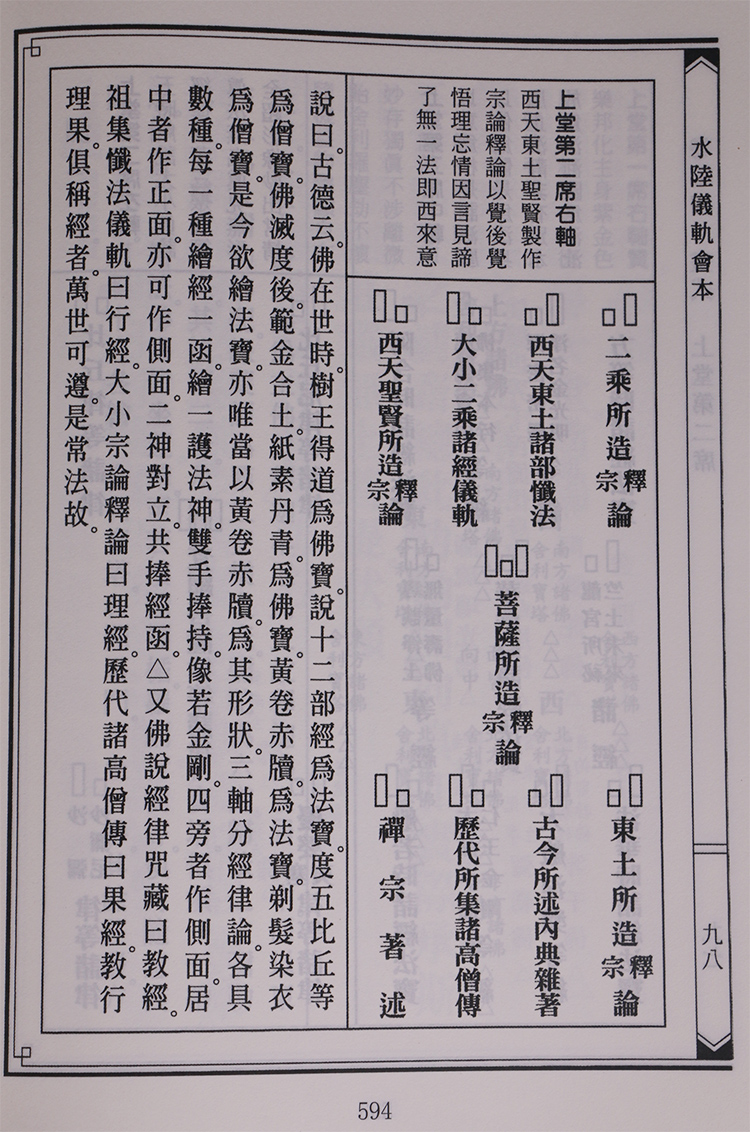 水陸儀軌會本
九八
上堂第二席右軸
西天東土聖賢製作
宗論釋論以覺後覺
悟理忘情因言見諦
了無一法即西來意
二乘所造釋宗論
西天東土諸部懺法
大小二乘諸經儀軌
西天聖賢所造釋宗論
菩薩所造釋宗論
東土所造釋宗論
古今所述內典雜著
歷代所集諸高僧傳
禪宗著述
說曰。古德云。佛在世時。樹王得道爲佛寶。說十二部經爲法寶。度五比丘等
爲僧寶。佛滅度後。範金合土。紙素丹青。爲佛寶。黃卷赤牘。爲法寶。剃髮染衣
爲僧寶。是今欲繪法寶。亦唯當以黃卷赤牘。爲其形狀。三軸分經律論。各具
數種。每一種繪經一函。繪一護法神。雙手捧持。像若金剛。四旁者作側面。居
中者作正面。亦可作側面。二神對立。共捧經函。△又佛說經律咒藏曰教經。
祖集懺法儀軌曰行經。大小宗論釋論曰理經。歷代諸高僧傳曰果經。教行
理果。俱稱經者。萬世可遵。是常法故。
594